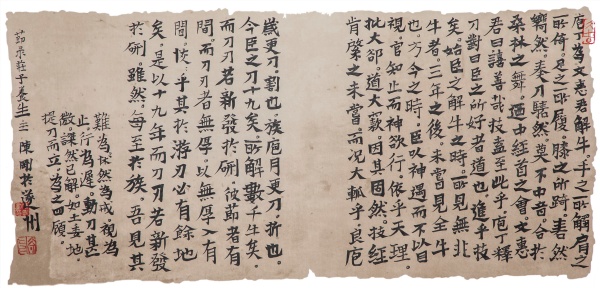 庖丁為文惠君解牛手之所觸肩之
所倚足之所履膝之所踦砉然
嚮然奏刀騞然莫不中音合於
桑林之舞廼中經首之會文惠
君曰譆善哉技蓋至此乎庖丁釋
刀對曰臣之所好者道也進乎技
矣始臣之解牛之時所見無非
牛者三年之後未嘗見全牛
也方今之時臣以神遇而不以目
視官知止而神欲行依乎天理
批大郤道大窾因其固然技經
肯綮之未嘗而況大軱乎良庖
歲更刀割也族庖月更刀折也
今臣之刀十九矣所解數千牛矣
而刀刃若新發於硎彼節者有
間而刀刃者無厚以無厚入有
間恢恢乎其於游刃必有餘地
矣是以十九年而刀刃若新發
於硎雖然每至於族吾見其
難為怵然為戒視為
止行為遲動刀甚
微謋然已解如土委地
提刀而立為之四顧
節录莊子養生主 陳剛於遂州